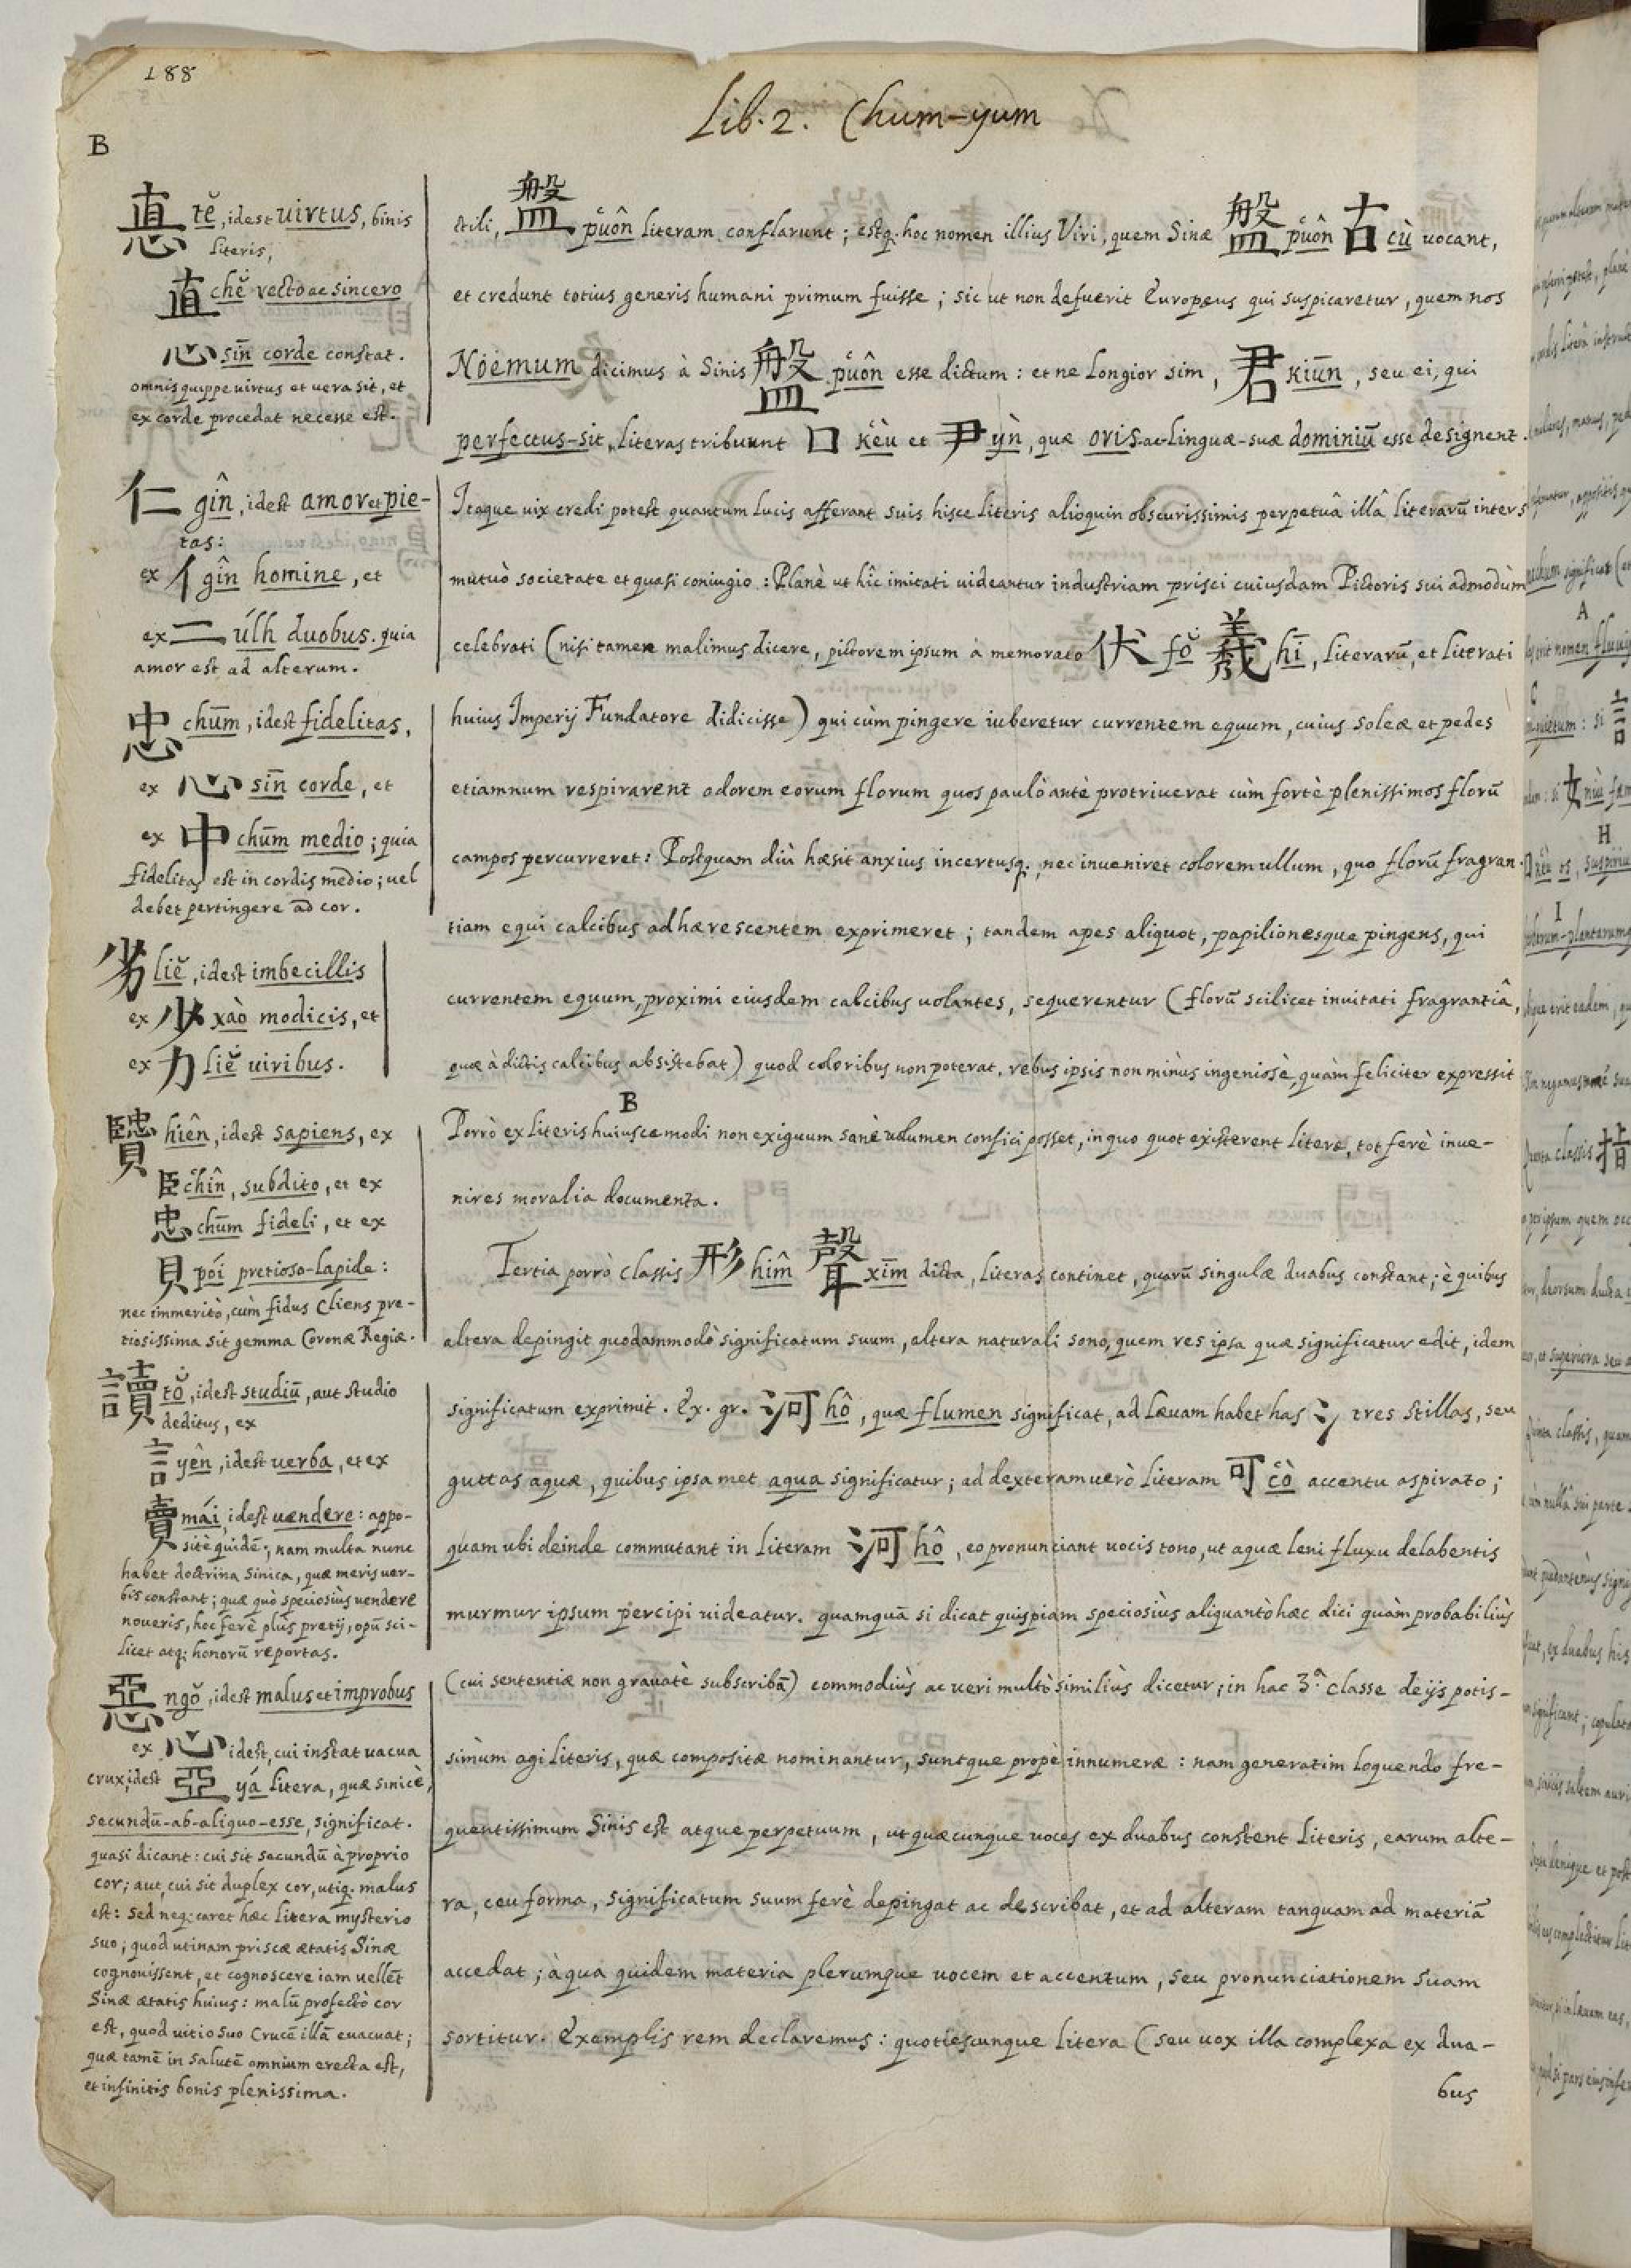 188
Lib. 2. Chum-yum
B
惪 tĕ, idest virtus, binis
literis,
直 chĕ recto ac sincero
心 sīn corde constat.
omnis quippe virtus et vera sit, et
ex corde procedat necesse est.
仁 gîn, idest amor et pie-
tas:
ex 亻 gîn homine, et
ex 二 úlh duobus. quia
amor est ad alterum.
忠 chūm, idest fidelitas,
ex 心 sīn corde, et
ex 中 chūm medio; quia
fidelitas est in cordis medio; vel
debet pertingere ad cor.
劣 liĕ, idest imbecillis
ex 少 xào modicis, et
ex 力 liĕ viribus.
hiên, idest sapiens, ex
臣 chîn, subdito, et ex
忠 chūm fideli, et ex
貝 pói pretioso-lapide:
nec immeritò, cùm fidus Cliens pre-
tiosissima sit gemma Coronæ Regiæ.
讀 tŏ, idest studiū, aut studio
deditus, ex
言 yên, idest verba, et ex
賣 mái, idest vendere: appo-
sitè quidē; nam multa nunc
habet doctrina Sinica, quæ meris ver-
bis constant; quæ quò speciosiùs vendere
noveris, hoc ferè plus pretij, opū sci-
licet atq; honorū reportas.
惡 ngŏ, idest malus et improbus
ex 心 idest, cui instat vacua
crux, idest 亞 yá litera, quæ sinicè,
secundū-ab-aliquo-esse, significat.
quasi dicant: cui sit secundū à proprio
cor; aut, cui sit duplex cor, utiq. malus
est: sed neq; caret hæc litera mysterio
suo; quod utinam priscæ ætatis Sinæ
cognovissent, et cognoscere iam vellēt
Sinæ ætatis huius: malū profectò cor
est, quod vitio suo Crucē illā evacuat;
quæ tamē in salutē omnium erecta est,
et infinitis bonis plenissima.
ctili, 盤 puôn literam conflarunt; estq. hoc nomen illius Viri, quem Sinæ 盤 puôn 古 cù vocant,
et credunt totius generis humani primum fuisse; sic ut non defuerit Europæus qui suspicaretur, quem nos
Nöemum dicimus à Sinis 盤 puôn esse dictum: et ne longior sim, 君 kiūn, seu ei, qui
perfectus-sit, literas tribuunt 口 kèu et 尹 ỳn, quæ oris-ac-linguæ-suæ dominiū esse designent.
Itaque vix credi potest quantum lucis afferant suis hisce literis alioquin obscurissimis perpetuâ illâ literarū inter s
mutuò societate et quasi coniugio: Planè ut hîc imitati videantur industriam prisci cuiusdam Pictoris sui admodùm
celebrati (nisi tamen malimus dicere, pictorem ipsum à memorato 伏 fŏ 羲 hī, literarū, et literati
huius Imperij Fundatore didicisse) qui cùm pingere iuberetur currentem equum, cuius soleæ et pedes
etiamnum respirarent odorem eorum florum quos paulò antè protriverat cùm fortè plenissimos florū
campos percurreret: Postquam diù hæsit anxius incertusq;, nec inveniret colorem ullum, quo florū fragran-
tiam equi calcibus adhærescentem exprimeret; tandem apes aliquot, papilionesque pingens, qui
currentem equum, proximi eiusdem calcibus volantes, sequerentur (florū scilicet invitati fragrantiâ,
quæ à dictis calcibus absistebat) quod coloribus non poterat, rebus ipsis non minùs ingeniosè, quàm feliciter expressit
B
Porrò ex literis huiuscemodi non exiguum sanè volumen confici posset, in quo quot existerent literæ, tot ferè inve-
nires moralia documenta.
Tertia porrò classis 形 hîm 聲 xīm dicta, literas continet, quarū singulæ duabus constant; è quibus
altera depingit quodammodò significatum suum, altera naturali sono, quem res ipsa quæ significatur edit, idem
significatum exprimit. Ex. gr. 河 hô, quæ flumen significat, ad lævam habet has 氵 tres stillas, seu
guttas aquæ, quibus ipsamet aqua significatur; ad dexteram verò literam 可 cò accentu aspirato;
quam ubi deinde commutant in literam 河 hô, eo pronunciant vocis tono, ut aquæ leni fluxu delabentis
murmur ipsum percipi videatur. quamquā si dicat quispiam speciosiùs aliquantò hæc dici quàm probabiliùs
(cui sententiæ non gravatè subscribā) commodiùs ac veri multò similiùs dicetur; in hac 3.ª classe de ijs potis-
simùm agi literis, quæ compositæ nominantur, suntque propè innumeræ: nam generatim loquendo fre-
quentissimum Sinis est atque perpetuum, ut quæcunque voces ex duabus constent literis, earum alte-
ra, ceu forma, significatum suum ferè depingat ac describat, et ad alteram tanquam ad materiā
accedat; à qua quidem materia plerumque vocem et accentum, seu pronunciationem suam
sortitur. Exemplis rem declaremus: quotiescunque litera (seu vox illa complexa ex dua-
bus